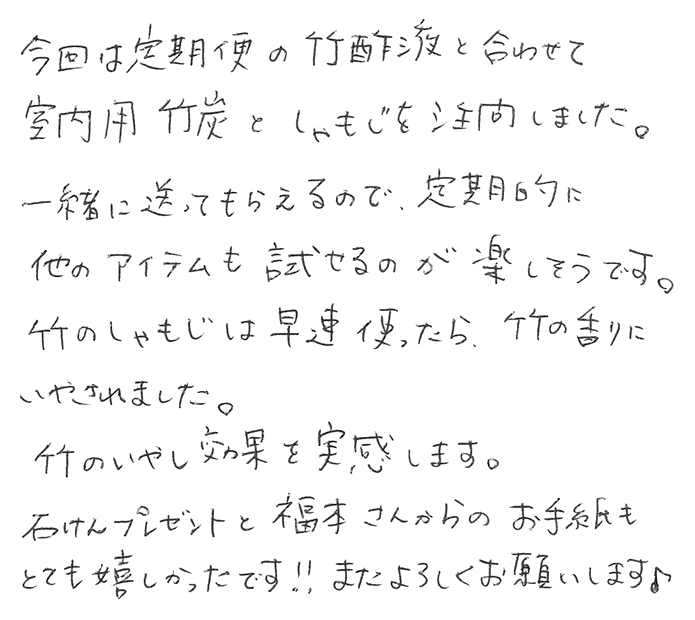 今回は定期便の竹酢液と合わせて
室内用竹炭としゃもじを注向しました。
一緒に送ってもらえるので、定期的に
他のアイテムも試せるのが楽しそうです。
竹のしゃもじは早速使ったら、竹の香りに
いやされました。
竹のいやし効果を実感します。
石けんプレゼントと福本さんからのお手紙も
とても嬉しかったです!! またよろしくお願いします♪